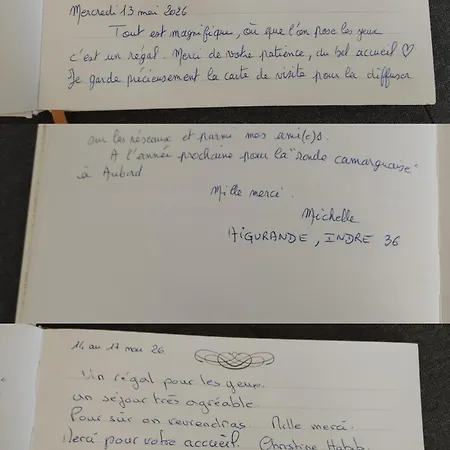 Mercredi 13 mai 2026
Tout est magnifique, où que l'on pose les yeux
c'est un régal. Merci de votre patience, du bel accueil ♡
Je garde précieusement la carte de visite pour la diffuser
sur les réseaux et parmi mes ami(e)s.
A l'année prochaine pour la "ronde camarguaise"
à Aubord
Mille merci.
Michelle
AIGURANDE, INDRE 36
14 au 17 mai 26
Un régal pour les yeux.
un séjour très agréable
Pour sûr on reviendras. Mille merci.
Merci pour votre accueil. Christine